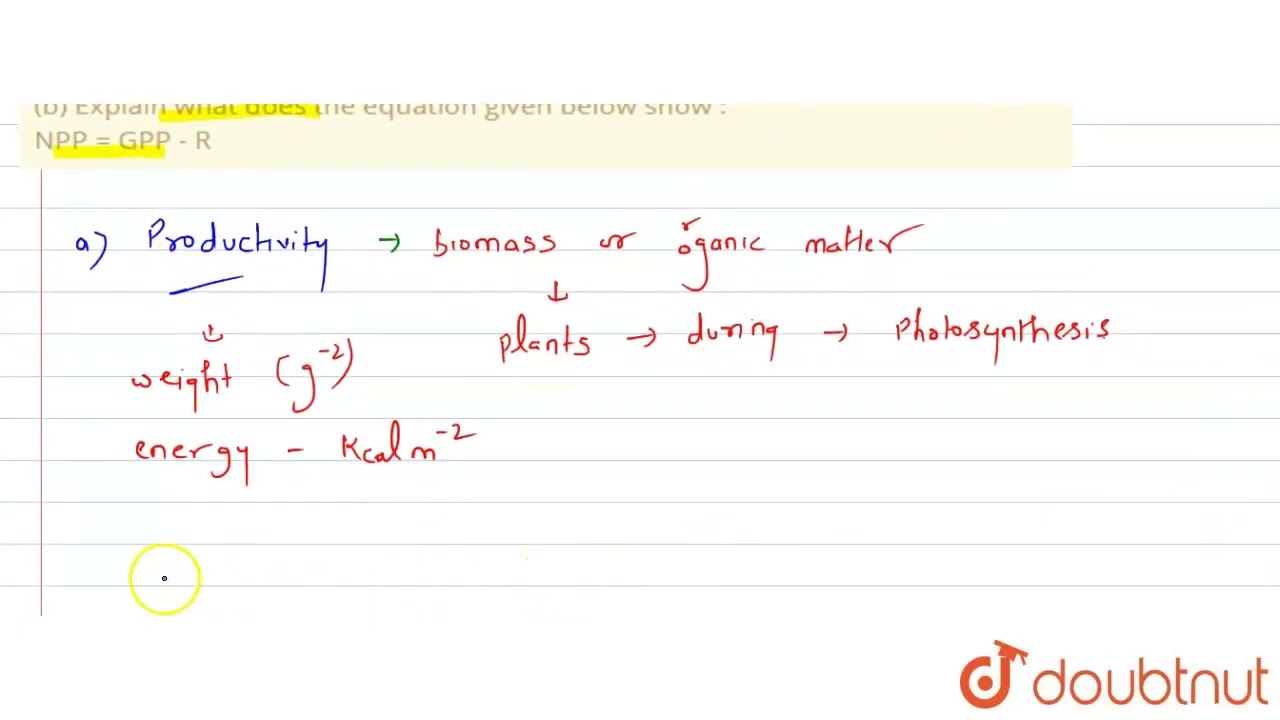 (b) Explain what does the equation given below show :
NPP = GPP - R
a) Productivity → biomass or organic matter
↓
↓
plants → during → Photosynthesis
weight (g⁻²)
energy - Kcal m⁻²
doubtnut